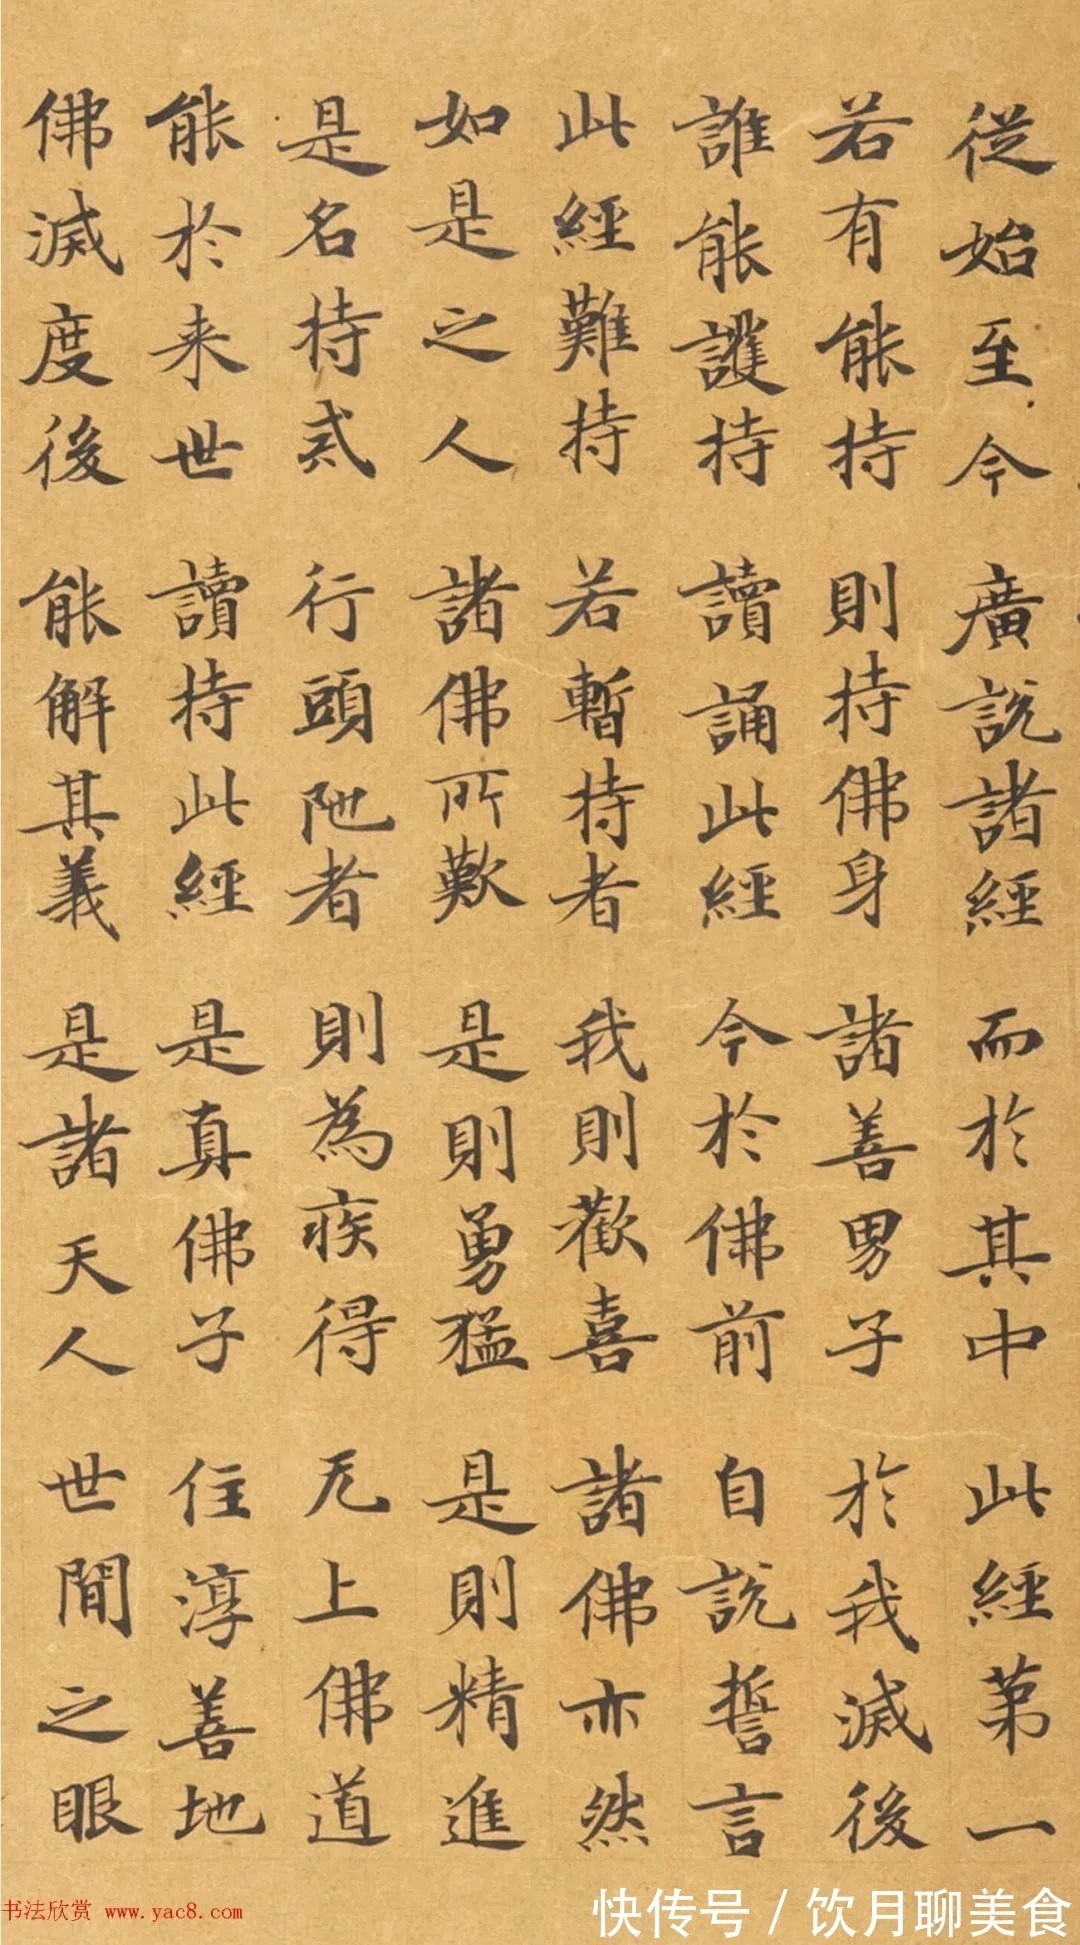 從始至今 廣説諸經 而於其中 此經第一
若有能持 則持佛身 諸善男子 於我滅後
誰能護持 讀誦此經 今於佛前 自説誓言
此經難持 若暫持者 我則歡喜 諸佛亦然
如是之人 諸佛所歎 是則勇猛 是則精進
是名持戒 行頭陁者 則為疾得 无上佛道
能於来世 讀持此經 是真佛子 住淳善地
佛滅度後 能解其義 是諸天人 世間之眼
书法欣赏 www.yac8.com
快传号 / 饮月聊美食